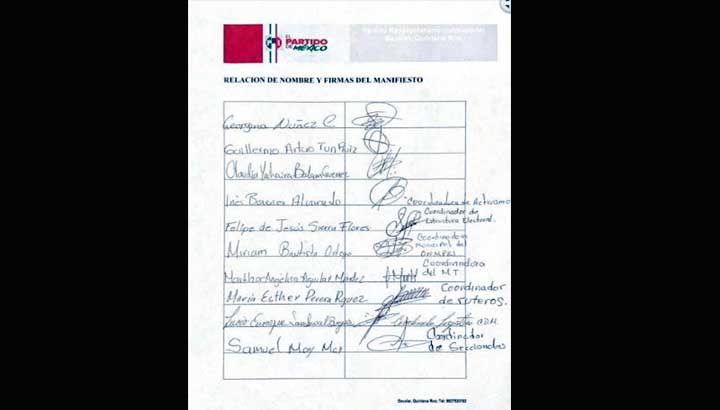 EL
PARTIDO
DE MÉXICO
PRI
Bacalar, Quintana Roo.
RELACION DE NOMBRE Y FIRMAS DEL MANIFIESTO
Georgina Nuñez C
Guillermo Arturo Tun Ruiz
Claudia Yahaira Balam
Inés Alvarado Coordinadora de Activismo
Felipe de Jesús Sierra Flores Coordinador de
Estructura Electoral.
Miriam Bautista Coordinadora
Municipal del
ONMPRI
Angelica Aguilar Méndez Coordinadora
del M.T.
María Esther Perera Coordinador
de ruteros.
Enrique Sandoval
Samuel May May Coordinador
de Seccionales
Bacalar, Quintana Roo; Tel: